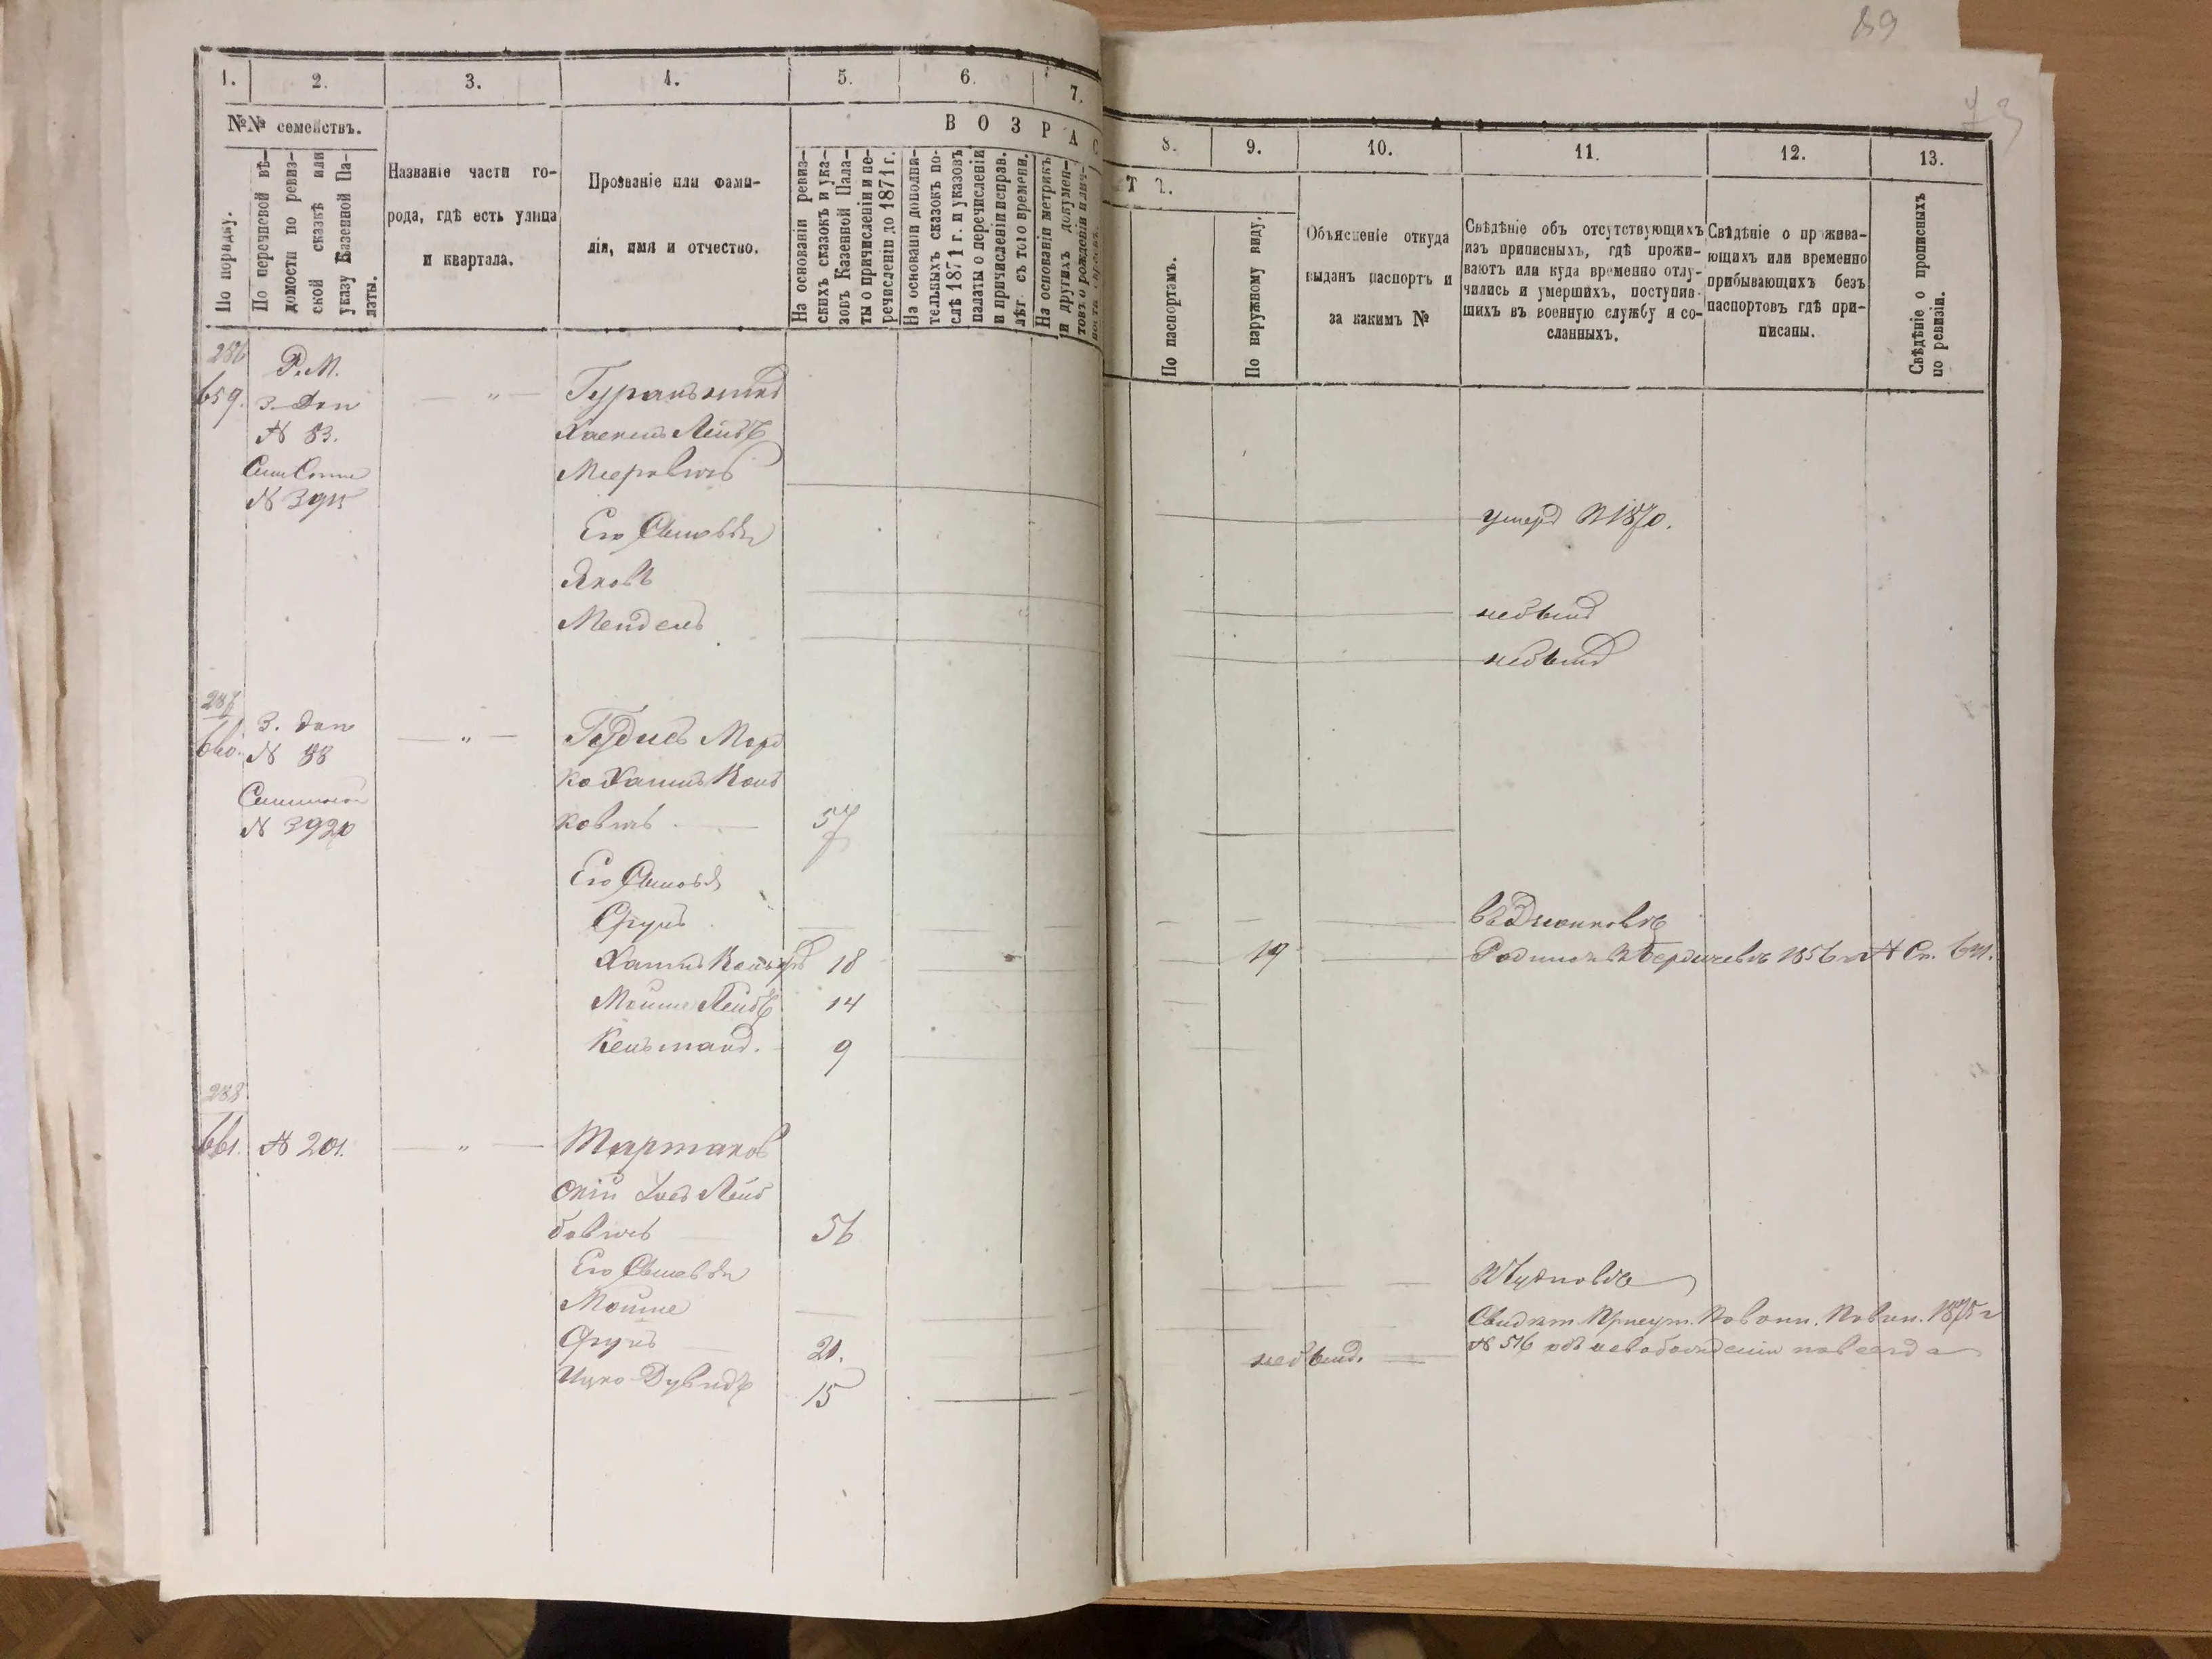 89
73
1. 2. 3. 4. 5. 6. 7.
8. 9. 10. 11. 12. 13.
№№ семействъ.
ВОЗРАС
ТЪ.
По порядку.
По перечневой вѣ-
домости по ревиз-
ской сказкѣ или
указу Казенной Па-
латы.
Названіе части го-
рода, гдѣ есть улица
и квартала.
Прозваніе или фами-
лія, имя и отчество.
На основаніи ревиз-
скихъ сказокъ и ука-
зовъ Казенной Пала-
ты о причисленіи и пе-
речисленіи до 1871 г.
На основаніи дополни-
тельныхъ сказокъ по-
слѣ 1871 г. и указовъ
палаты о перечисленіи
и причисленіи исправ.
лѣт. съ того времени.
На основаніи метрикъ
и другихъ докумен-
товъ о рожденіи
По паспортамъ.
По наружному виду.
Объясненіе откуда
выданъ паспортъ и
за какимъ №
Свѣдѣніе объ отсутствующихъ
изъ приписныхъ, гдѣ прожи-
ваютъ или куда временно отлу-
чились и умершихъ, поступив-
шихъ въ военную службу и со-
сланныхъ.
Свѣдѣніе о прожива-
ющихъ или временно
прибывающихъ безъ
паспортовъ гдѣ при-
писаны.
Свѣдѣніе о прописныхъ
по ревизіи.
286
659.
Р. М.
3 Доп
№ 83.
№ 3915
Хаскель Лейбъ
Меровичъ
умеръ 1870.
Его Сыновья
Яковъ
Мендель
287
660.
3. доп
№ 88
№ 3920
Гудисъ Морд
ко Хаимъ
ковичъ 57
Его Сыновья
Сруль
Хаимъ 18 19
Родился въ Бердичевѣ 1856 г. № Сп.
Мойше Лейбъ 14
Кельманъ. 9
288
661.
№ 201.
Тартаков
скій Лейб
бовичъ 56
Его Сыновья
Мойше
въ Чудновѣ
Сруль 21.
Свидѣт. Присут. 1875 г
№ 516 объ освобожденіи навсегда
Ицко Дувидъ 15